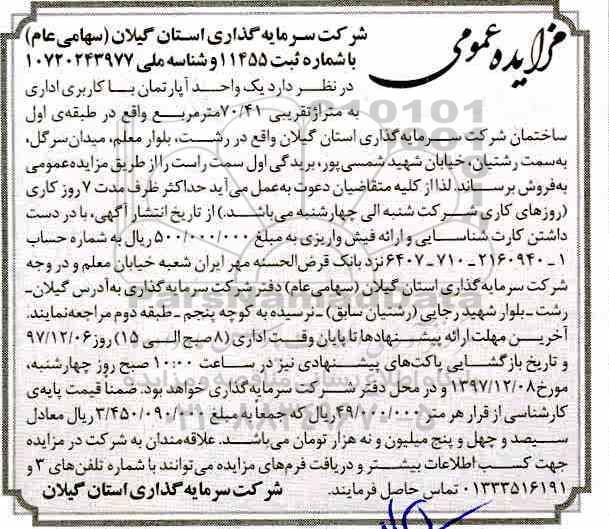 مزایده عمومی
شرکت سرمایه گذاری استان گیلان (سهامی عام)
با شماره ثبت ۱۱۴۵۵ و شناسه ملی ۱۰۷۲۰۲۴۳۹۷۷
در نظر دارد یک واحد آپارتمان با کاربری اداری
به متراژ تقریبی ۷۰/۴۱ مترمربع واقع در طبقه‌ی اول
ساختمان شرکت سرمایه‌گذاری استان گیلان واقع در رشت، بلوار معلم، میدان سرگل،
به‌سمت رشتیان، خیابان شهید شمسی‌پور، بریدگی اول سمت راست را از طریق مزایده عمومی
به‌فروش برساند. لذا از کلیه متقاضیان دعوت به‌عمل می‌آید حداکثر ظرف مدت ۷ روز کاری
(روزهای کاری شرکت شنبه الی چهارشنبه می‌باشد.) از تاریخ انتشار آگهی، با در دست
داشتن کارت شناسایی و ارائه فیش واریزی به مبلغ ۵۰۰/۰۰۰/۰۰۰ ریال به شماره حساب
۱-۲۱۶۰۹۴۰-۷۱۰-۶۴۰۷ نزد بانک قرض‌الحسنه مهر ایران شعبه خیابان معلم و در وجه
شرکت سرمایه‌گذاری استان گیلان (سهامی‌عام) دفتر شرکت سرمایه‌گذاری به‌آدرس گیلان-
رشت-بلوار شهید رجایی (رشتیان سابق)-نرسیده به کوچه پنجم-طبقه دوم مراجعه‌نمایند.
آخرین مهلت ارائه پیشنهادها تا پایان وقت اداری (۸ صبح الی ۱۵) روز ۹۷/۱۲/۰۶
و تاریخ بازگشایی پاکت‌های پیشنهادی نیز در ساعت ۱۰:۰۰ صبح روز چهارشنبه،
مورخ ۱۳۹۷/۱۲/۰۸ و در محل دفتر شرکت سرمایه‌گذاری خواهد بود. ضمنا قیمت پایه‌ی
کارشناسی از قرار هر متر ۴۹/۰۰۰/۰۰۰ ریال که جمعاً به مبلغ ۳/۴۵۰/۰۹۰/۰۰۰ ریال معادل
سیصد و چهل و پنج میلیون و نه هزار تومان می‌باشد. علاقه‌مندان به شرکت در مزایده
جهت کسب اطلاعات بیشتر و دریافت فرم‌های مزایده می‌توانند با شماره تلفن‌های ۳ و
۰۱۳۳۳۵۱۶۱۹۱ تماس حاصل فرمایند. شرکت سرمایه‌گذاری استان گیلان
ParsNamadData
۰۲۱-۸۸۳۴۹۶۷۰-۵